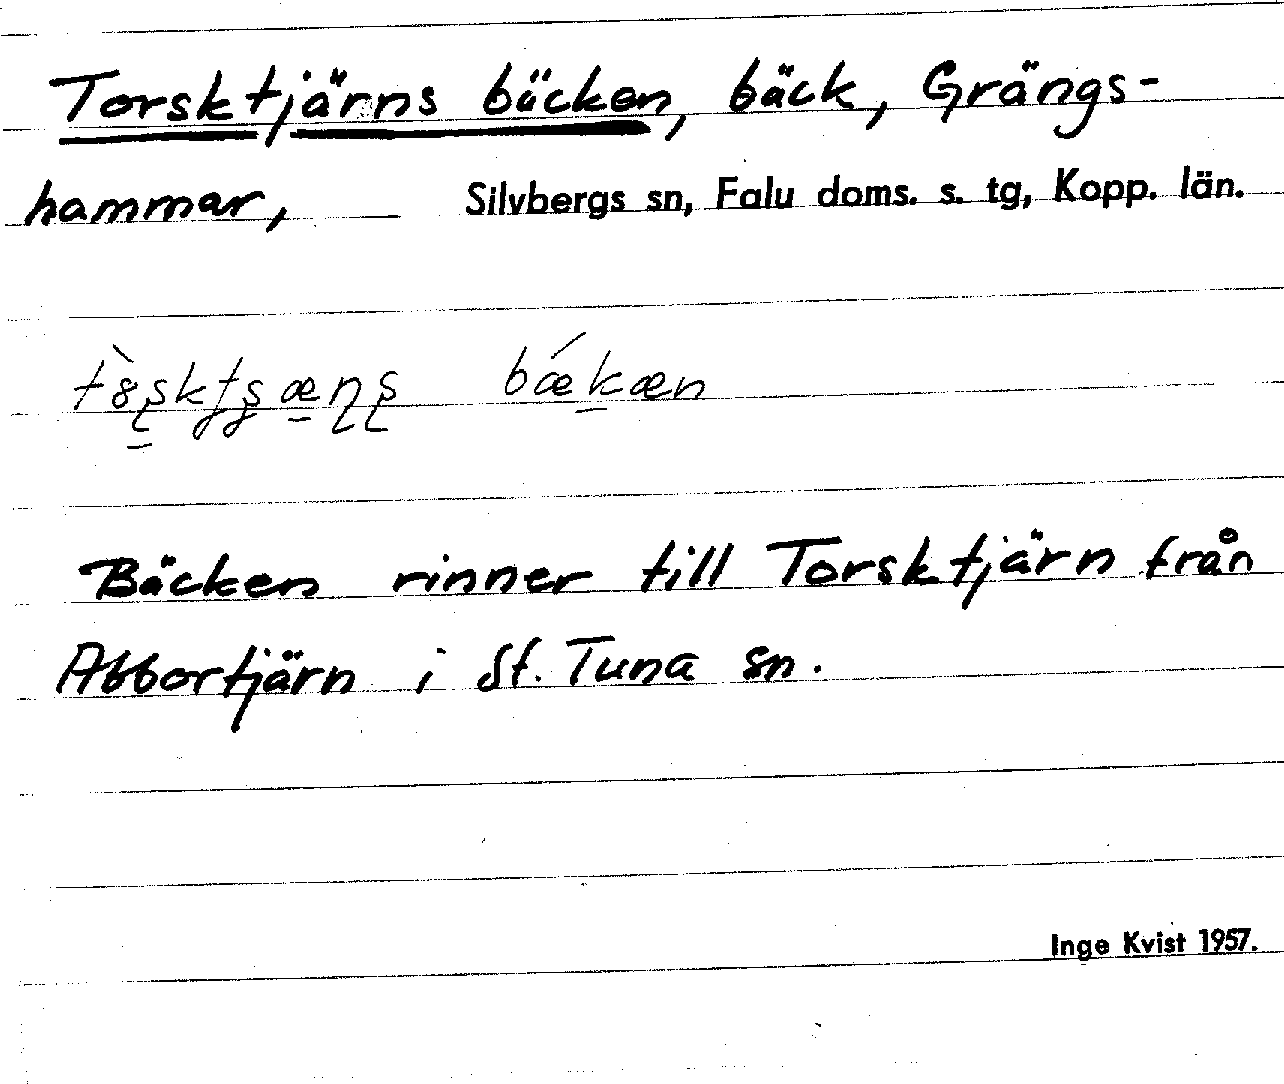 Torsktjärns bäcken, bäck, Grängs-
hammar, Silvbergs sn, Falu doms. s. tg, Kopp. län.
bækæn
Bäcken rinner till Torsktjärn från
Abbortjärn i St. Tuna sn.
Inge Kvist 1957.